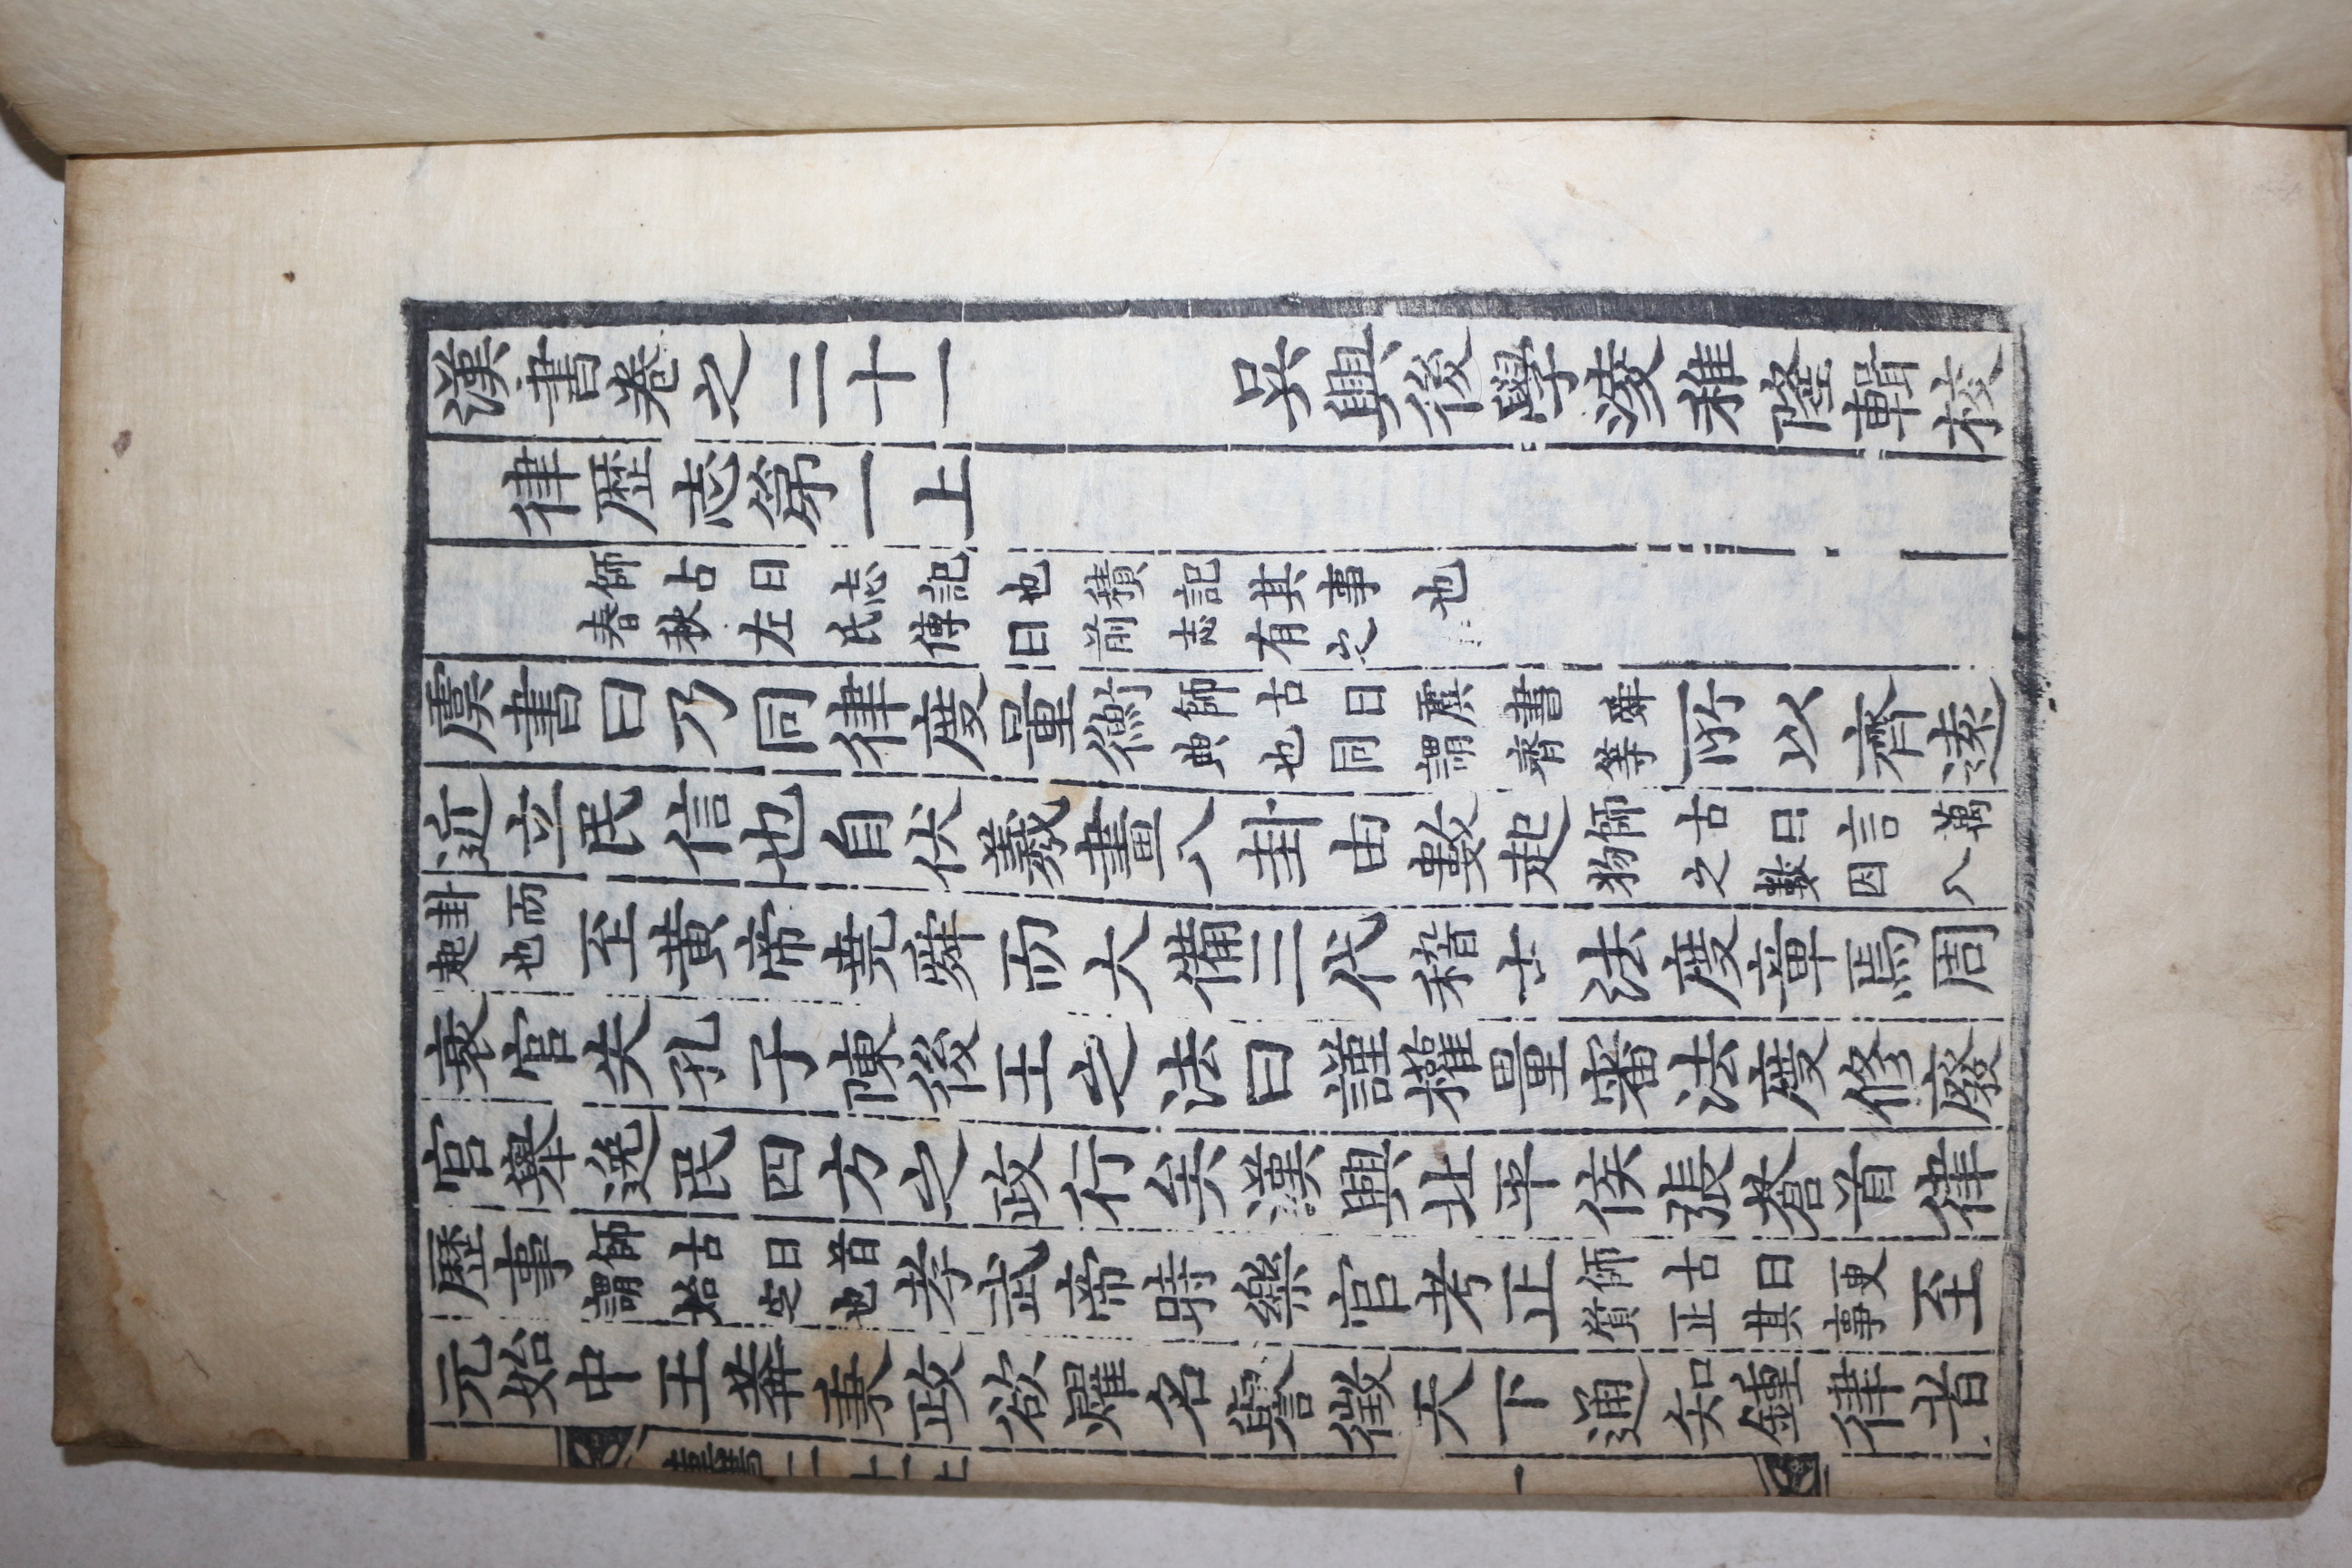 漢書卷之二十一 吳興後學淩稚隆輯校
律歷志第一上
師古曰志記也積記其事也春秋左氏傳曰前志有之
虞書曰乃同律度量衡師古曰虞書舜典也同謂齊等所以齊遠
近立民信也自伏羲畫八卦由數起師古曰言萬物之數因八
卦而起也至黃帝堯舜而大備三代稽古法度章焉周
衰官失孔子陳後王之法曰謹權量審法度修廢
官舉逸民四方之政行矣漢興北平侯張蒼首律
歷事師古曰首謂始定也孝武帝時樂官考正師古曰更質正其事至
元始中王莽秉政欲燿名譽徵天下通知鐘律者
一